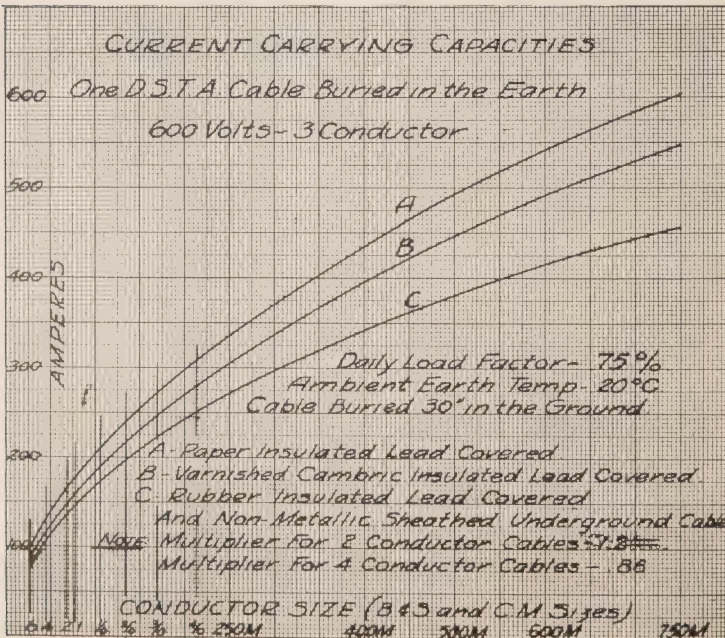 CURRENT CARRYING CAPACITIES
One D.S.T.A. Cable Buried in the Earth
600 Volts - 3 Conductor
600
500
400
300
200
100
AMPERES
A
B
C
Daily Load Factor - 75%
Ambient Earth Temp - 20°C
Cable Buried 30" in the Ground.
A - Paper Insulated Lead Covered
B - Varnished Cambric Insulated Lead Covered.
C - Rubber Insulated Lead Covered
And Non-Metallic Sheathed Underground Cable
NOTE: Multiplier For 2 Conductor Cables -
Multiplier For 4 Conductor Cables - .88
CONDUCTOR SIZE (B&S and C.M. Sizes)
6 4 2 1 250M 400M 500M 600M 750M